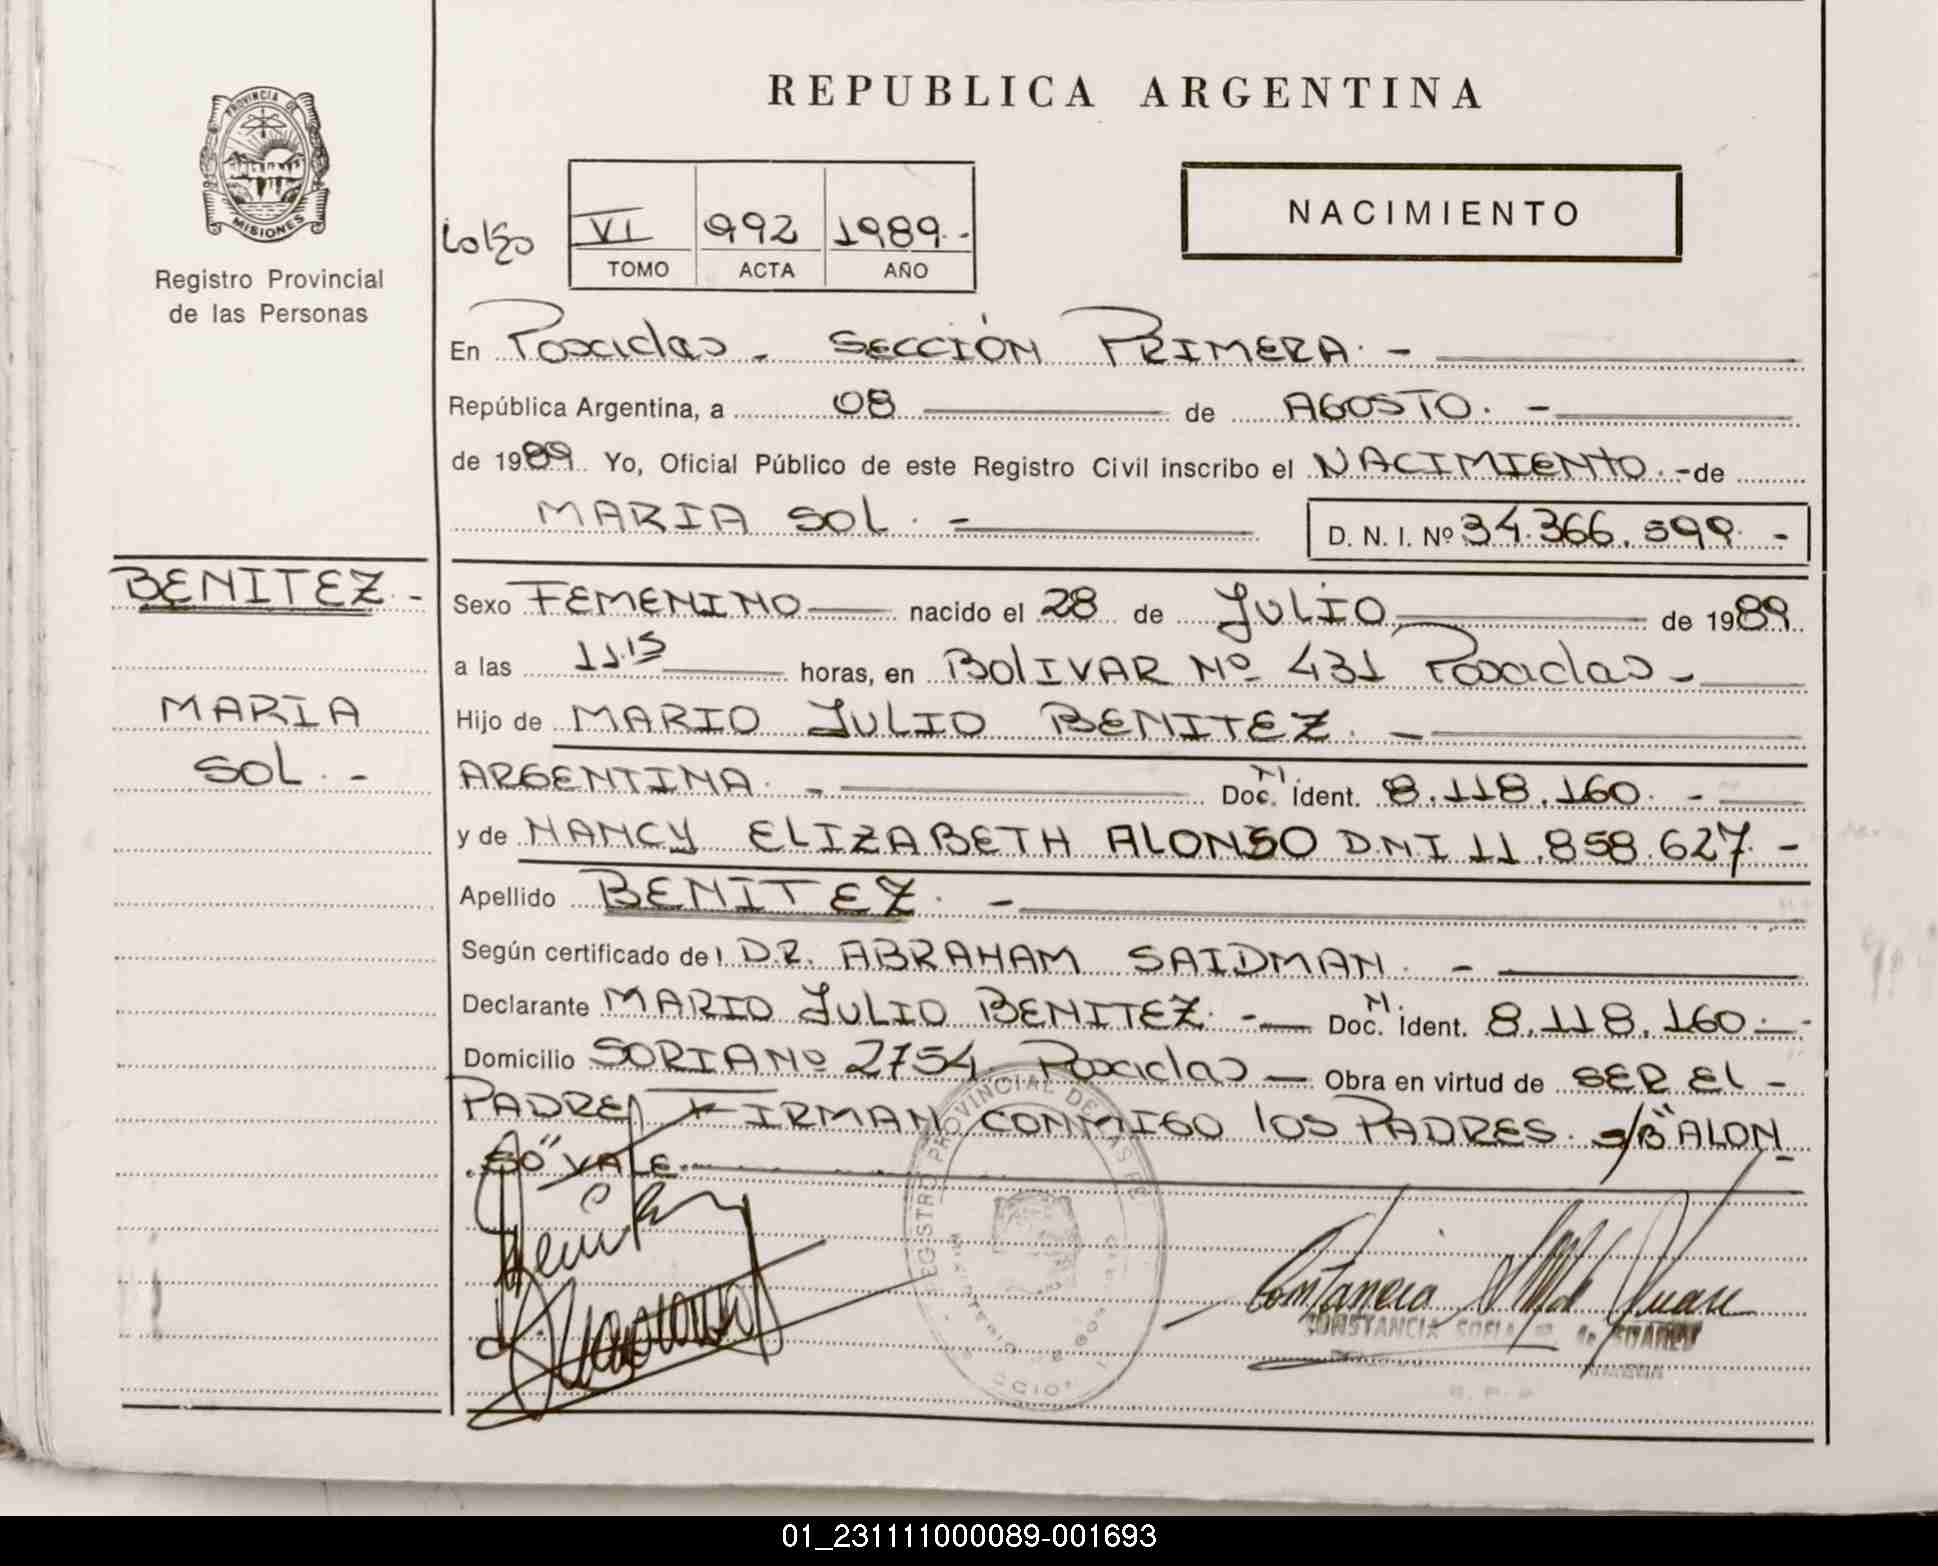 REPUBLICA ARGENTINA
PROVINCIA DE
MISIONES
Registro Provincial
de las Personas
VI 992 1989.-
TOMO ACTA AÑO
NACIMIENTO
En Posadas - SECCIÓN PRIMERA. -
República Argentina, a 08 de AGOSTO. -
de 1989 Yo, Oficial Público de este Registro Civil inscribo el NACIMIENTO.- de
MARIA SOL. - D. N. I. Nº 34.366.599. -
BENITEZ. -
MARIA
SOL. -
Sexo FEMENINO nacido el 28 de JULIO de 1989
a las 11.15 horas, en BOLIVAR Nº 431 Posadas -
Hijo de MARIO JULIO BENITEZ. -
ARGENTINA. - Doc. Ident. M. 8.118.160. -
y de NANCY ELIZABETH ALONSO DNI 11.858.627. -
Apellido BENITEZ. -
Según certificado del DR. ABRAHAM SAIDMAN. -
Declarante MARIO JULIO BENITEZ. - Doc. Ident. M. 8.118.160. -
Domicilio SORIA Nº 2754 Posadas - Obra en virtud de SER EL -
PADRE, FIRMAN CONMIGO LOS PADRES. S/B "ALON
SO" VALE.
REGISTRO PROVINCIAL DE LAS PE
CONSTANCIA SOFIA de SUAREZ
01_231111000089-001693